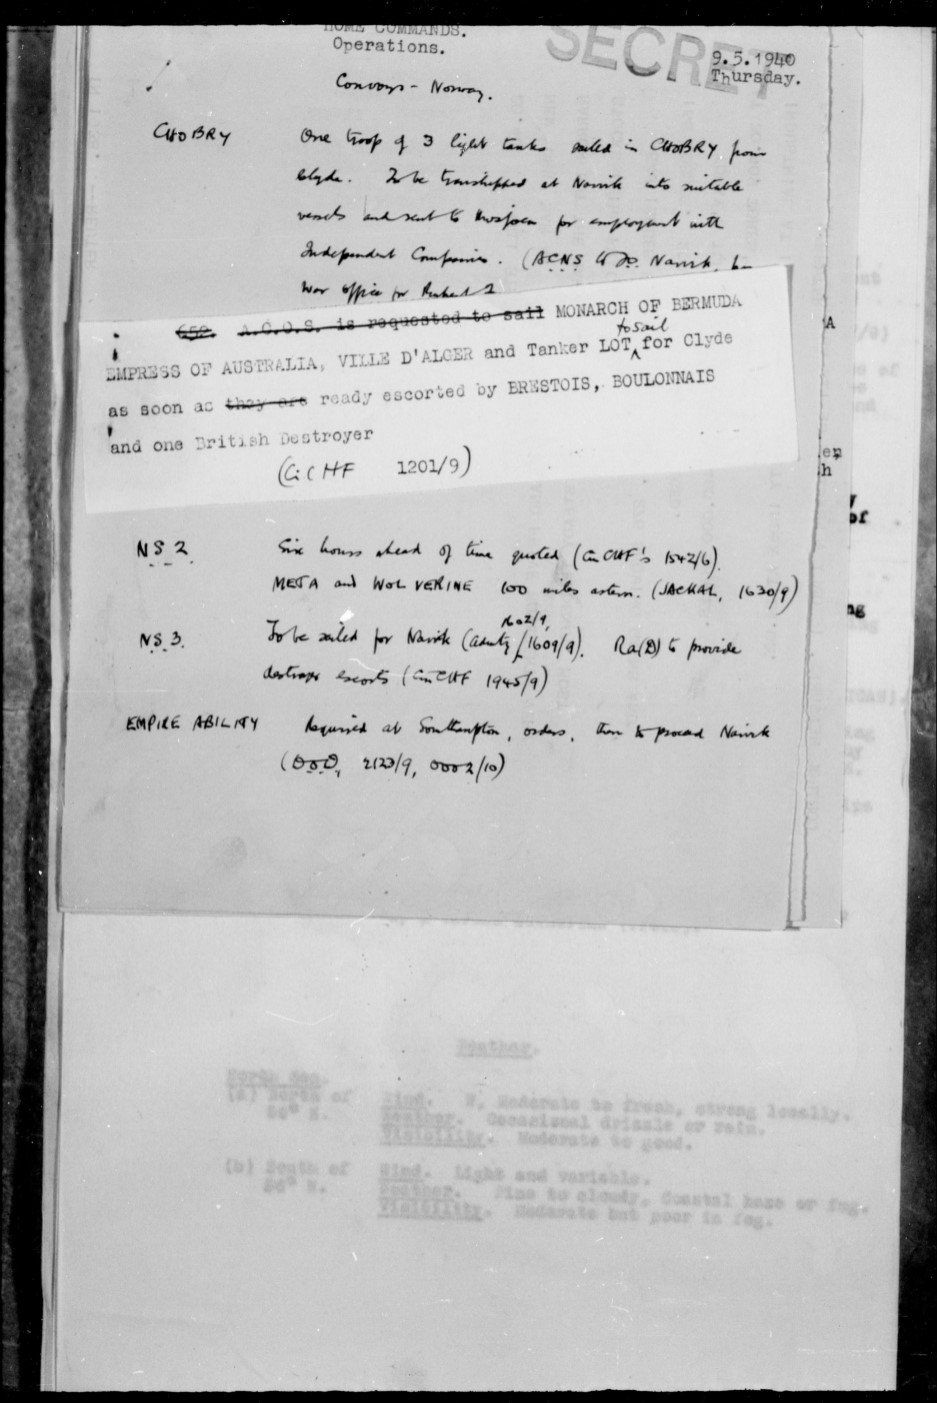 HOME COMMANDS.
Operations.
SECRET
9.5.1940
Thursday.
Convoys - Norway.
CHOBRY One troop of 3 light tanks sailed in CHOBRY from
Clyde. To be transhipped at Narvik into suitable
vessels and sent to for employment with
Independent Companies. (ACNS to Narvik,
War Office for
650. A.C.O.S. is requested to sail MONARCH OF BERMUDA
EMPRESS OF AUSTRALIA, VILLE D'ALGER and Tanker LOT to sail for Clyde
as soon as they are ready escorted by BRESTOIS, BOULONNAIS
and one British Destroyer
(CinCHF 1201/9)
NS 2 Six hours ahead of time quoted (CinCHF's 1542/6).
META and WOLVERINE 100 miles astern. (JACKAL, 1630/9)
1602/9,
NS.3. To be sailed for Narvik (Admty / 1609/9). Ra(D) to provide
destroyer escorts (CinCHF 1945/9)
EMPIRE ABILITY Required at Southampton, orders, then to proceed Narvik
(DoD, 2123/9, 0002/10)
A
en
h
of
ng
Weather.
North Sea.
(a) North of
56° N.
Wind. W, Moderate to fresh, strong locally.
Weather. Occasional drizzle or rain.
Visibility. Moderate to good.
(b) South of
56° N.
Wind. Light and variable.
Weather. Fine to cloudy, Coastal haze or fog.
Visibility. Moderate but poor in fog.